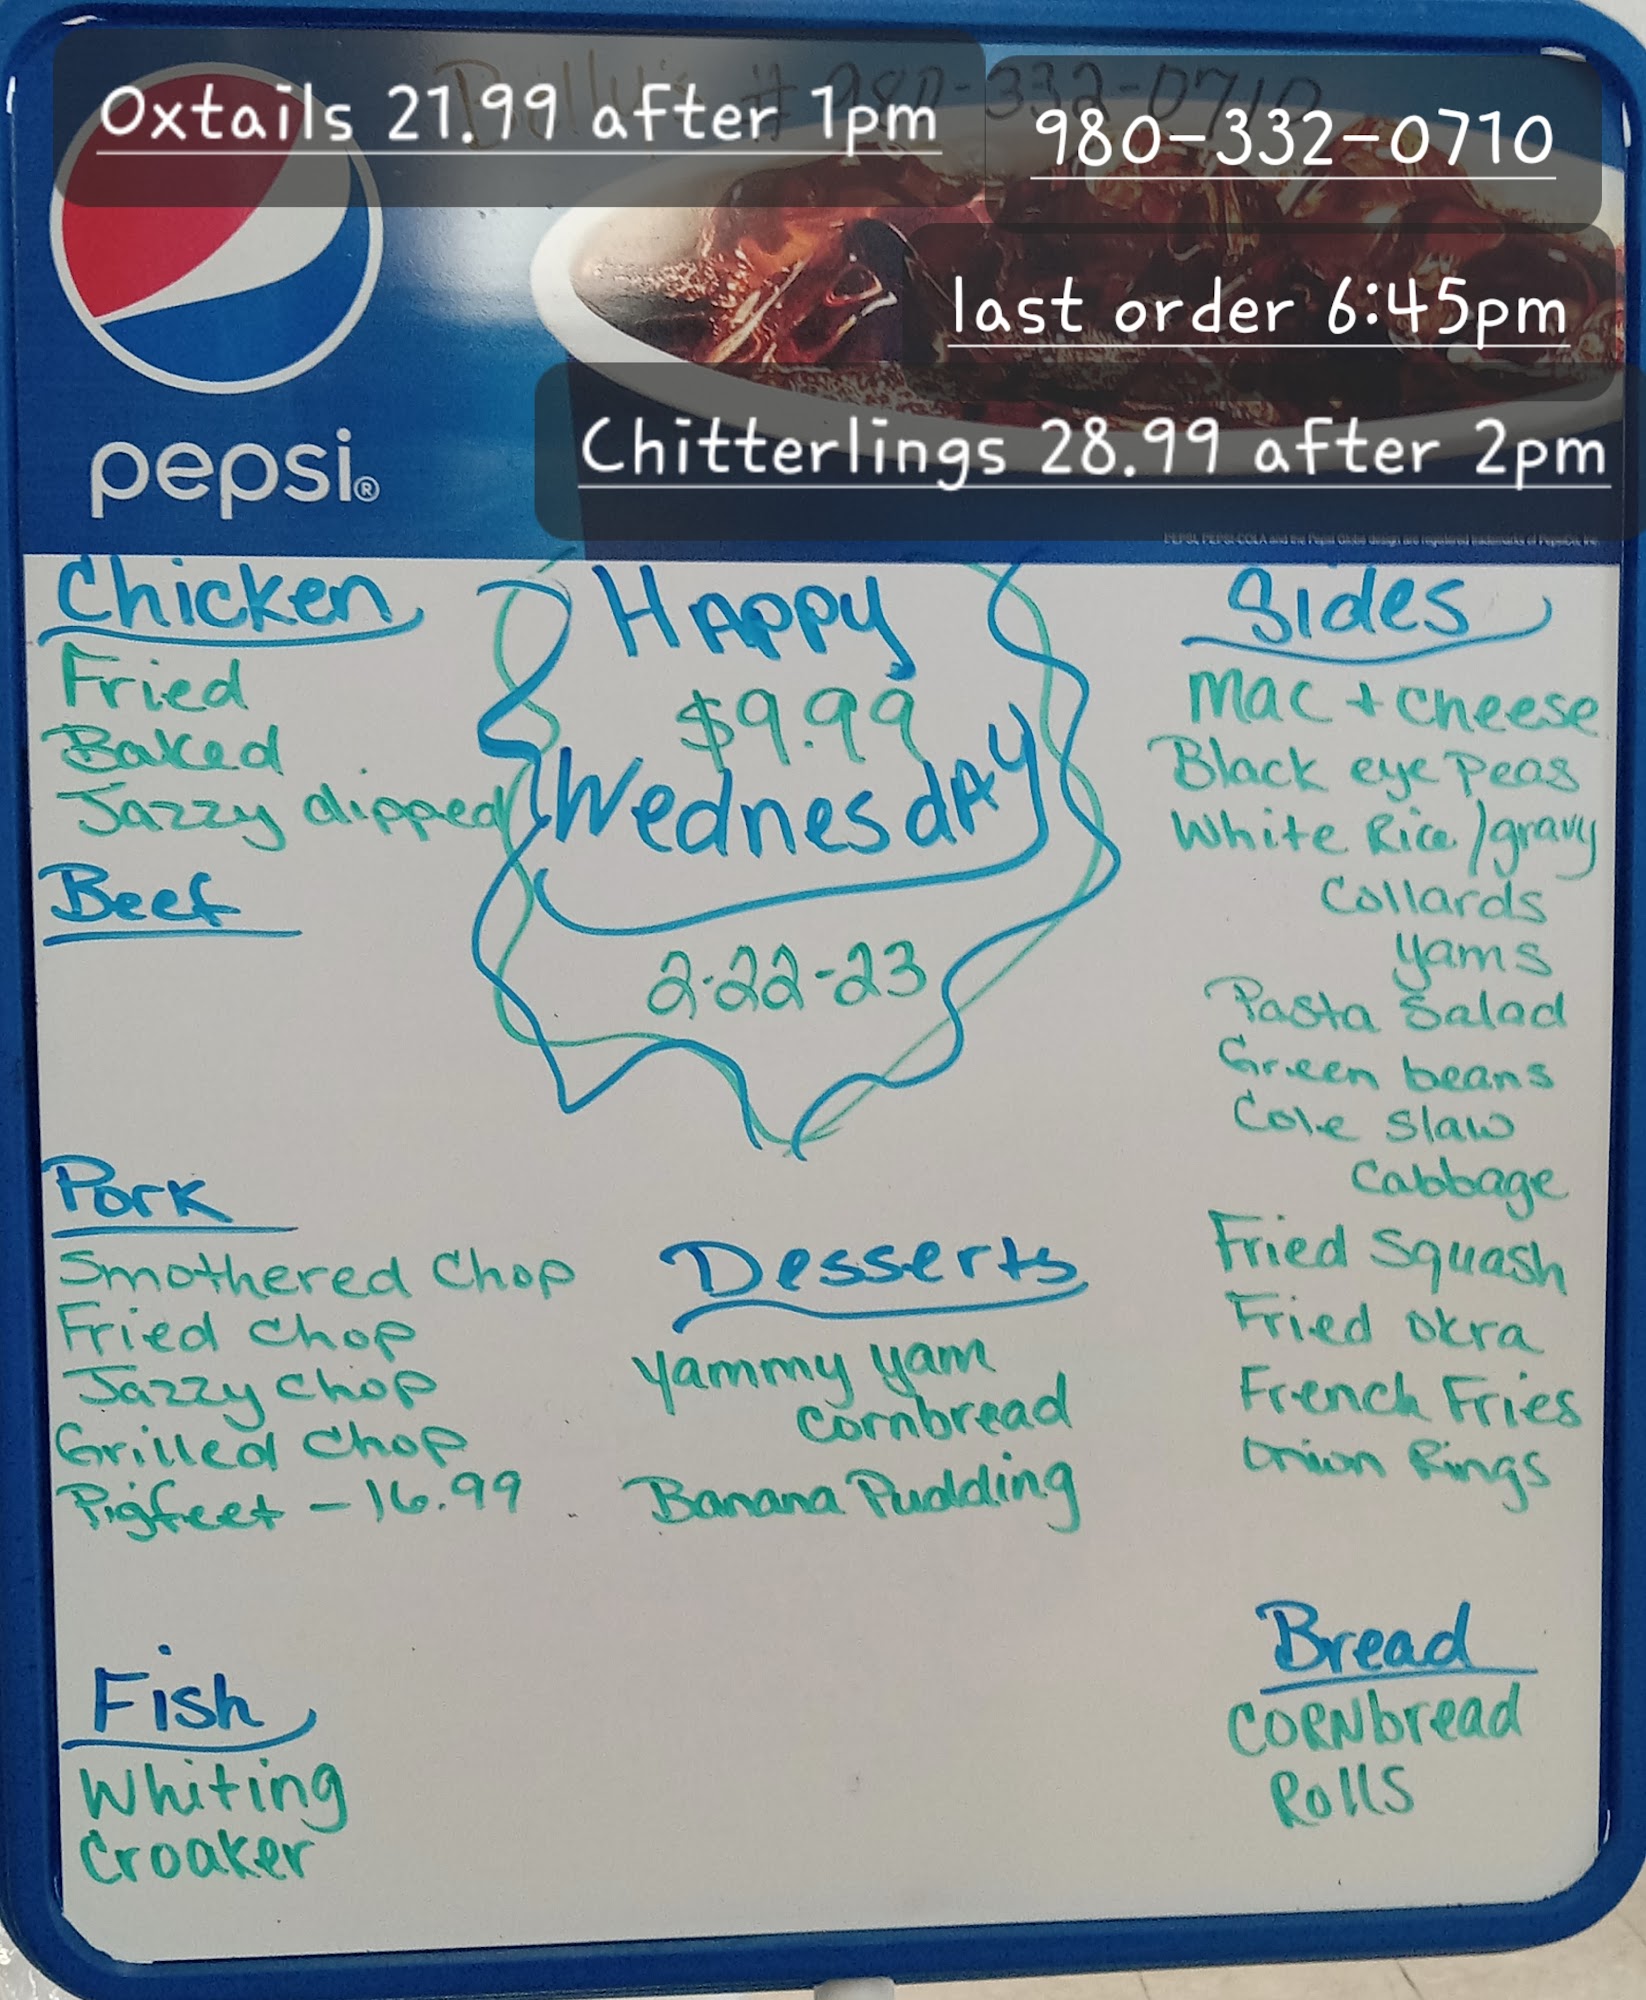 Billy's # 980-332-0710
Oxtails 21.99 after 1pm
980-332-0710
last order 6:45pm
Chitterlings 28.99 after 2pm
pepsi®
Chicken
Fried
Baked
Jazzy dipped
Beef
Pork
Smothered Chop
Fried Chop
Jazzy Chop
Grilled Chop
Pigfeet - 16.99
Fish
Whiting
Croaker
Happy
$9.99
Wednesday
2-22-23
Desserts
Yammy Yam
Cornbread
Banana Pudding
Sides
Mac + Cheese
Black eye Peas
White Rice/gravy
Collards
Yams
Pasta Salad
Green beans
Cole Slaw
Cabbage
Fried Squash
Fried Okra
French Fries
Onion Rings
Bread
Cornbread
Rolls